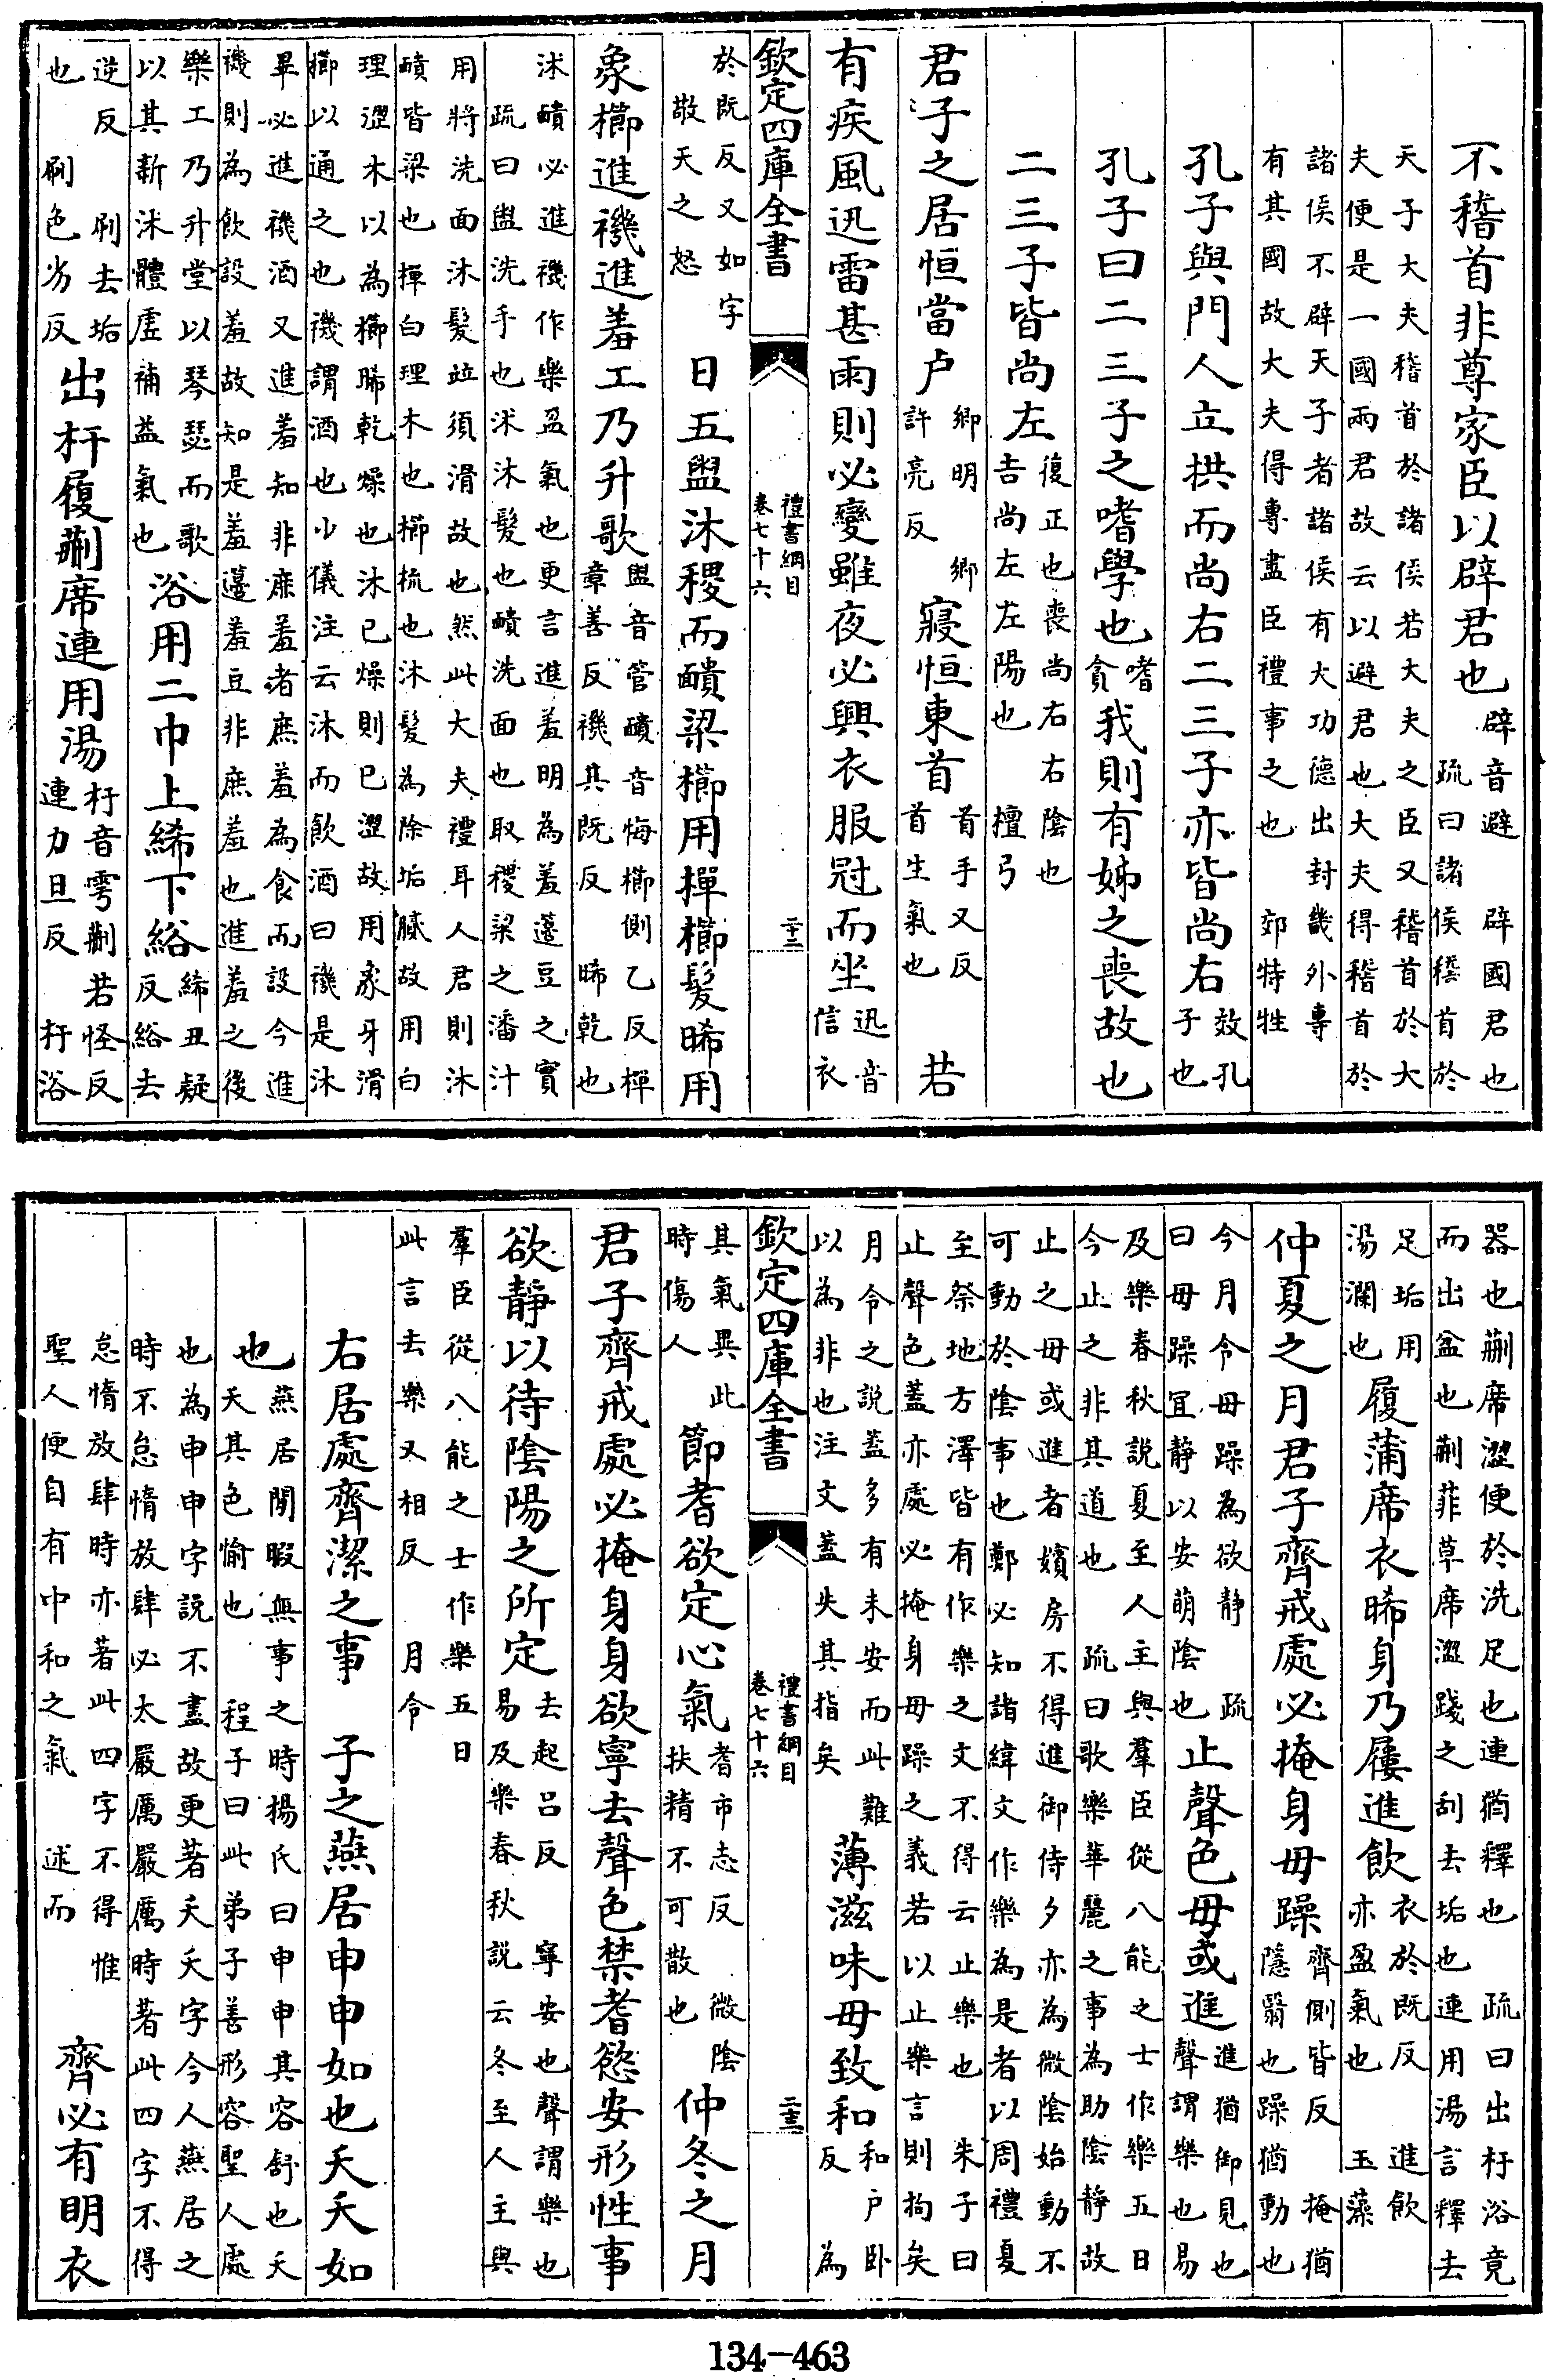 不稽首非尊家臣以辟君也辟音避　辟國君也
疏曰諸侯稽首於
天子大夫稽首於諸侯若大夫之臣又稽首於大
夫便是一國兩君故云以避君也大夫得稽首於
諸侯不辟天子者諸侯有大功德出封畿外專
有其國故大夫得專盡臣禮事之也　郊特牲
孔子與門人立拱而尚右二三子亦皆尚右效孔
子也
孔子曰二三子之嗜學也嗜貪我則有姊之喪故也
二三子皆尚左復正也喪尚右右陰也
吉尚左左陽也　檀弓
君子之居恒當户鄉明　鄉許亮反寢恒東首首手又反首生氣也若
有疾風迅雷甚雨則必變雖夜必興衣服冠而坐迅音
信衣
欽定四庫全書　禮書綱目卷七十六　二十二
於既反又如字
敬天之怒
日五盥沐稷而靧梁櫛用樿櫛髮晞用
象櫛進禨進羞工乃升歌盥音管靧音悔櫛側乙反樿
章善反禨其既反　晞乾也
沐靧必進禨作樂盈氣也更言進羞明為羞籩豆之實
疏曰盥洗手也沐沐髮也靧洗面也取稷梁之潘汁
用將洗面沐髮竝須滑故也然此大夫禮耳人君則沐
靧皆梁也樿白理木也櫛梳也沐髮為除垢膩故用白
理澀木以為櫛晞乾燥也沐已燥則已澀故用象牙滑
櫛以通之也禨謂酒也少儀注云沐而飲酒曰禨是沐
畢必進禨酒又進羞知非庶羞者庶羞為食而設今進
禨則為飲設羞故知是羞籩羞豆非庶羞也進羞之後
樂工乃升堂以琴瑟而歌
以其新沐體虚補益氣也
浴用二巾上絺下綌絺丑疑
反綌去
逆反　刷去垢
也　刷色劣反
出杅履蒯席連用湯杅音雩蒯苦怪反
連力旦反　杅浴
器也蒯席澀便於洗足也連猶釋也　疏曰出杅浴竟
而出盆也蒯菲草席澀踐之刮去垢也連用湯言釋去
足垢用
湯瀾也
履蒲席衣晞身乃屨進飲衣於既反　進飲
亦盈氣也　玉藻
仲夏之月君子齊戒處必掩身毋躁齊側皆反　掩猶
隱翳也躁猶動也
今月令毋躁為欲靜　疏
曰毋躁宜靜以安萌陰也
止聲色毋或進進猶御見也
聲謂樂也易
及樂春秋說夏至人主與羣臣從八能之士作樂五日
今止之非其道也　疏曰歌樂華麗之事為助陰靜故
止之毋或進者嬪房不得進御侍夕亦為微陰始動不
可動於陰事也鄭必知諸緯文作樂為是者以周禮夏
至祭地方澤皆有作樂之文不得云止樂也　朱子曰
止聲色蓋亦處必掩身毋躁之義若以止樂言則拘矣
月令之說蓋多有未安而此難
以為非也注文蓋失其指矣
薄滋味毋致和和户卧
反　為
欽定四庫全書　禮書綱目卷七十六　二十三
其氣異此
時傷人
節耆欲定心氣耆市志反　微陰
扶精不可散也
仲冬之月
君子齊戒處必掩身身欲寧去聲色禁耆慾安形性事
欲靜以待陰陽之所定去起呂反　寧安也聲謂樂也
易及樂春秋說云冬至人主與
羣臣從八能之士作樂五日
此言去樂又相反　月令
右居處齊潔之事　子之燕居申申如也夭夭如
也燕居閒暇無事之時楊氏曰申申其容舒也夭
夭其色愉也　程子曰此弟子善形容聖人處
也為申申字說不盡故更著夭夭字今人燕居之
時不怠惰放肆必太嚴厲嚴厲時著此四字不得
怠惰放肆時亦著此四字不得惟
聖人便自有中和之氣　述而
齊必有明衣
134-463